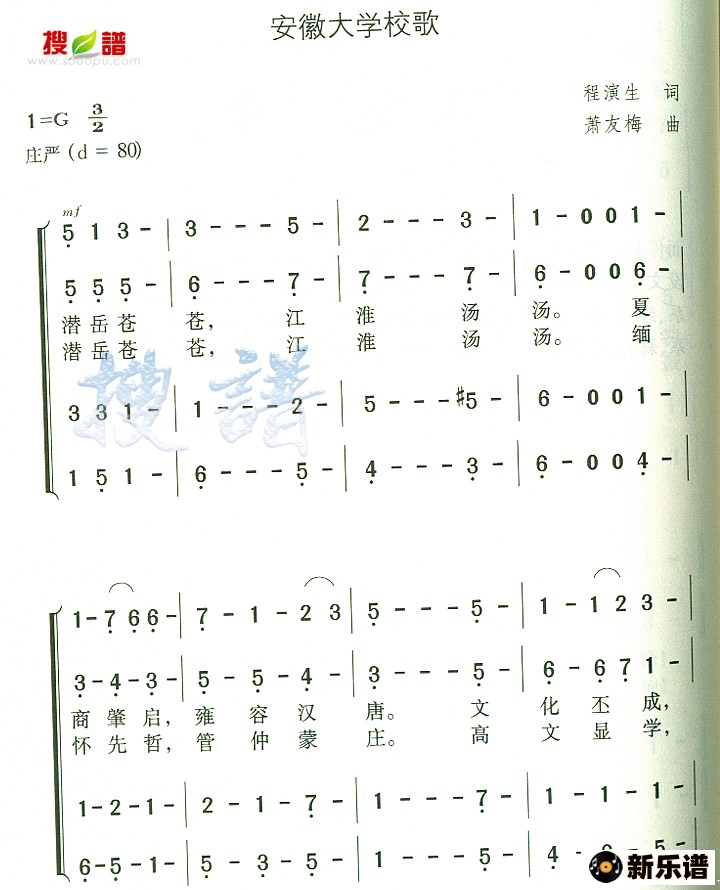 安徽大学校歌
搜谱
www.sooopu.com
程演生 词
1=G 3/2
萧友梅 曲
庄严(d = 80)
mf
5 1 3 - | 3 - - - 5 - | 2 - - - 3 - | 1 - 0 0 1 - |
5 5 5 - | 6 - - - 7 - | 7 - - - 7 - | 6 - 0 0 6 - |
潜岳苍 苍, 江 淮 汤 汤。 夏
潜岳苍 苍, 江 淮 汤 汤。 缅
搜谱
3 3 1 - | 1 - - - 2 - | 5 - - - #5 - | 6 - 0 0 1 - |
1 5 1 - | 6 - - - 5 - | 4 - - - 3 - | 6 - 0 0 4 - |
1 - 7 6 6 - | 7 - 1 - 2 3 | 5 - - - 5 - | 1 - 1 2 3 - |
3 - 4 - 3 - | 5 - 5 - 4 - | 3 - - - 5 - | 6 - 6 7 1 - |
商 肇 启, 雍 容 汉 唐。 文 化 丕 成,
怀 先 哲, 管 仲 蒙 庄。 高 文 显 学,
1 - 2 - 1 - | 2 - 1 - 7 - | 1 - - - 7 - | 1 - 1 - 1 - |
6 - 5 - 1 - | 5 - 5 - 5 - | 1 - - - 5 - | 4 - 6 5
新乐谱